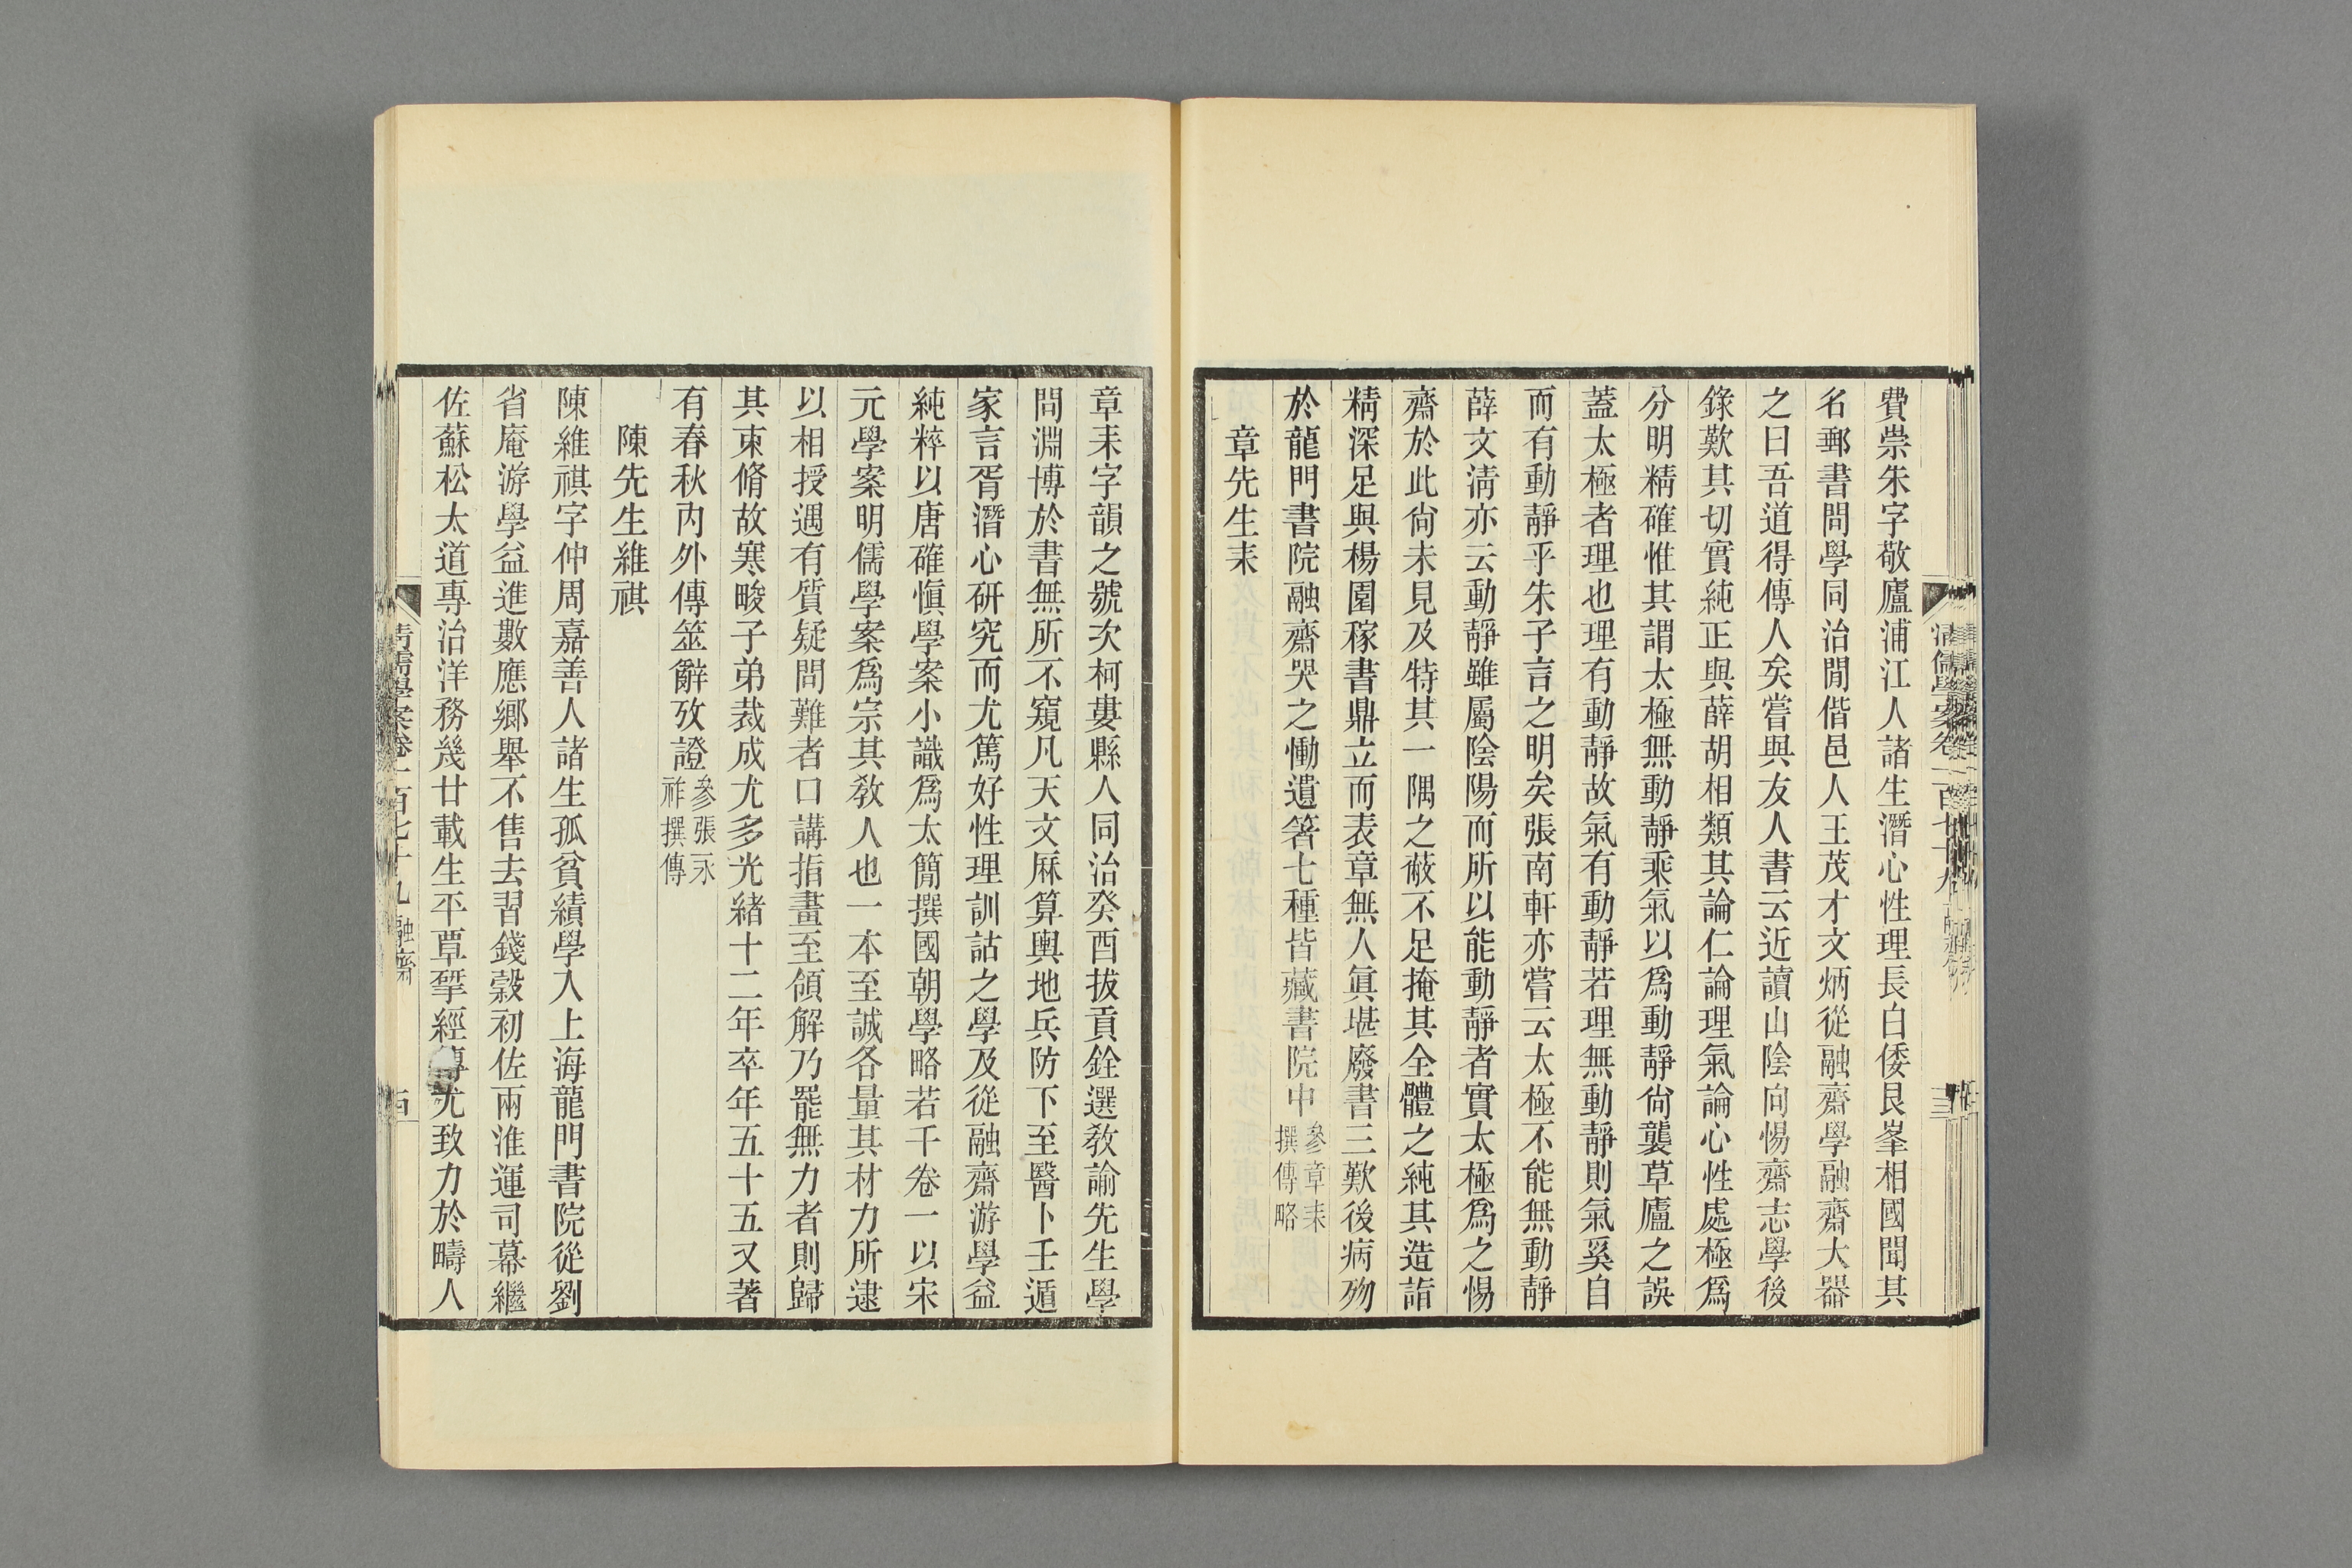 費崇朱字敬廬浦江人諸生潛心性理長白倭艮峯相國聞其
名郵書問學同治閒偕邑人王茂才文炳從融齋學融齋大器
之曰吾道得傳人矣嘗與友人書云近讀山陰向惕齋志學後
錄歎其切實純正與薛胡相類其論仁論理氣論心性處極爲
分明精確惟其謂太極無動靜乘氣以爲動靜尙襲草廬之誤
蓋太極者理也理有動靜故氣有動靜若理無動靜則氣奚自
而有動靜乎朱子言之明矣張南軒亦嘗云太極不能無動靜
薛文淸亦云動靜雖屬陰陽而所以能動靜者實太極爲之惕
齋於此尙未見及特其一隅之蔽不足掩其全體之純其造詣
精深足與楊園稼書鼎立而表章無人眞堪廢書三歎後病歿
於龍門書院融齋哭之慟遺箸七種皆藏書院中參章耒
撰傳略
章先生耒
章耒字韻之號次柯婁縣人同治癸酉拔貢銓選敎諭先生學
問淵博於書無所不窺凡天文厤算輿地兵防下至醫卜壬遁
家言胥潛心研究而尤篤好性理訓詁之學及從融齋游學益
純粹以唐確愼學案小識爲太簡撰國朝學略若千卷一以宋
元學案明儒學案爲宗其敎人也一本至誠各量其材力所逮
以相授遇有質疑問難者口講指畫至領解乃罷無力者則歸
其束脩故寒畯子弟裁成尤多光緒十二年卒年五十五又著
有春秋內外傳筮辭攷證參張永
祚撰傳
陳先生維祺
陳維祺字仲周嘉善人諸生孤貧績學入上海龍門書院從劉
省庵游學益進數應鄉舉不售去習錢穀初佐兩淮運司幕繼
佐蘇松太道專治洋務幾廿載生平覃揅經傳尤致力於疇人
清儒學案卷一百七十九 融齋